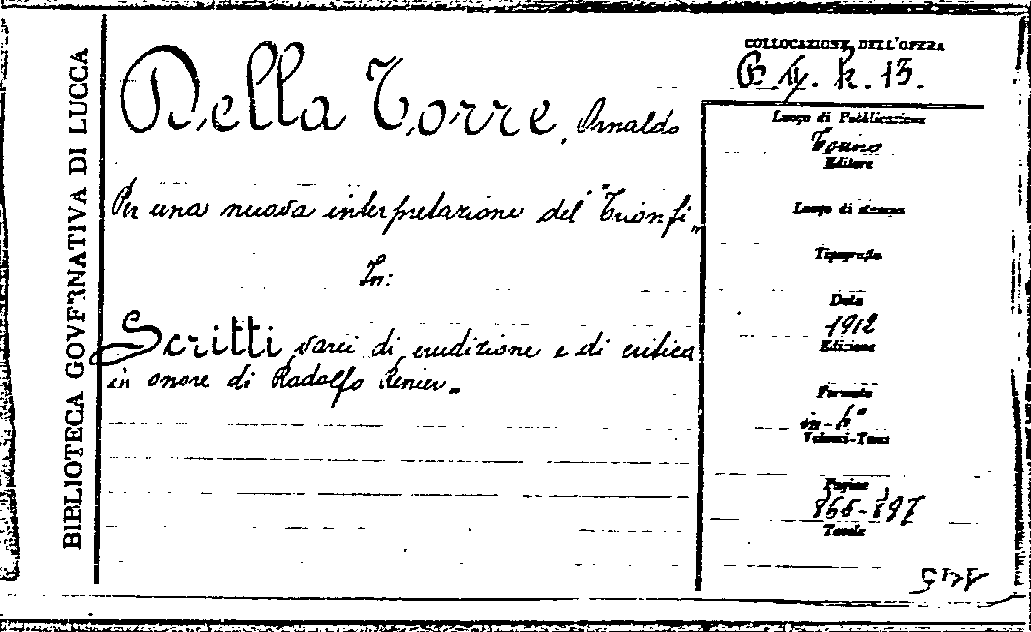 BIBLIOTECA GOVERNATIVA DI LUCCA
Della Torre, Arnaldo
Per una nuova interpretazione del "Trionfi"
In:
Scritti varii di erudizione e di critica
in onore di Rodolfo Renier.
COLLOCAZIONE DELL'OPERA
Luogo di Pubblicazione
Torino
Editore
Luogo di stampa
Tipografia
Data
1912
Edizione
Formato
Volumi-Tomi
Pagine
Tavole